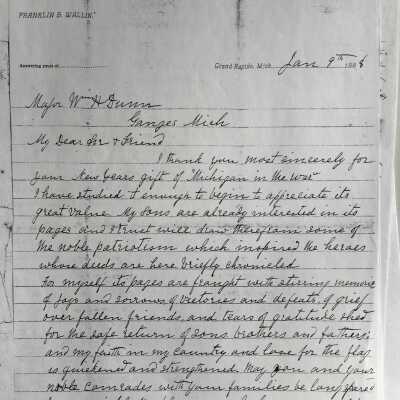 FRANKLIN B. WALLIN.
Answering yours of
Grand Rapids, Mich. Jan 9th 1888
Major Wm H Dunn
Ganges Mich
My Dear Sir & Friend
I thank you most sincerely for
your New Years gift of "Michigan in the War"
I have studied it enough to begin to appreciate its
great value. My sons are already interested in its
pages and I trust will draw therefrom some of
the noble patriotism which inspired the heroes
whose deeds are here briefly chronicled.
For myself its pages are fraught with stirring memories
of joys and sorrows of victories and defeats, of grief
over fallen friends, and tears of gratitude shed
for the safe return of sons brothers and fathers;
and my faith in my Country and love for the flag
is quickened and strengthened. May you and your
noble comrades with your families be long spared